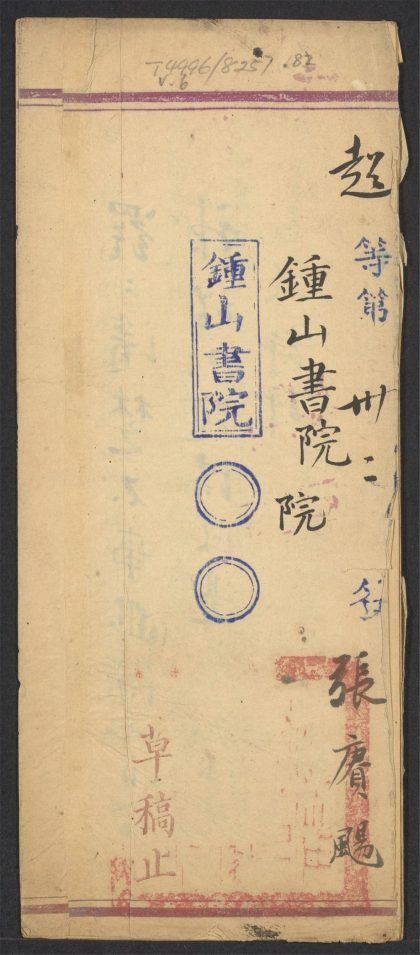 T4996/8257 .82
v.6
超
等第
卅二
名
張賡颺
鍾山書院
院
鍾山書院
草稿止